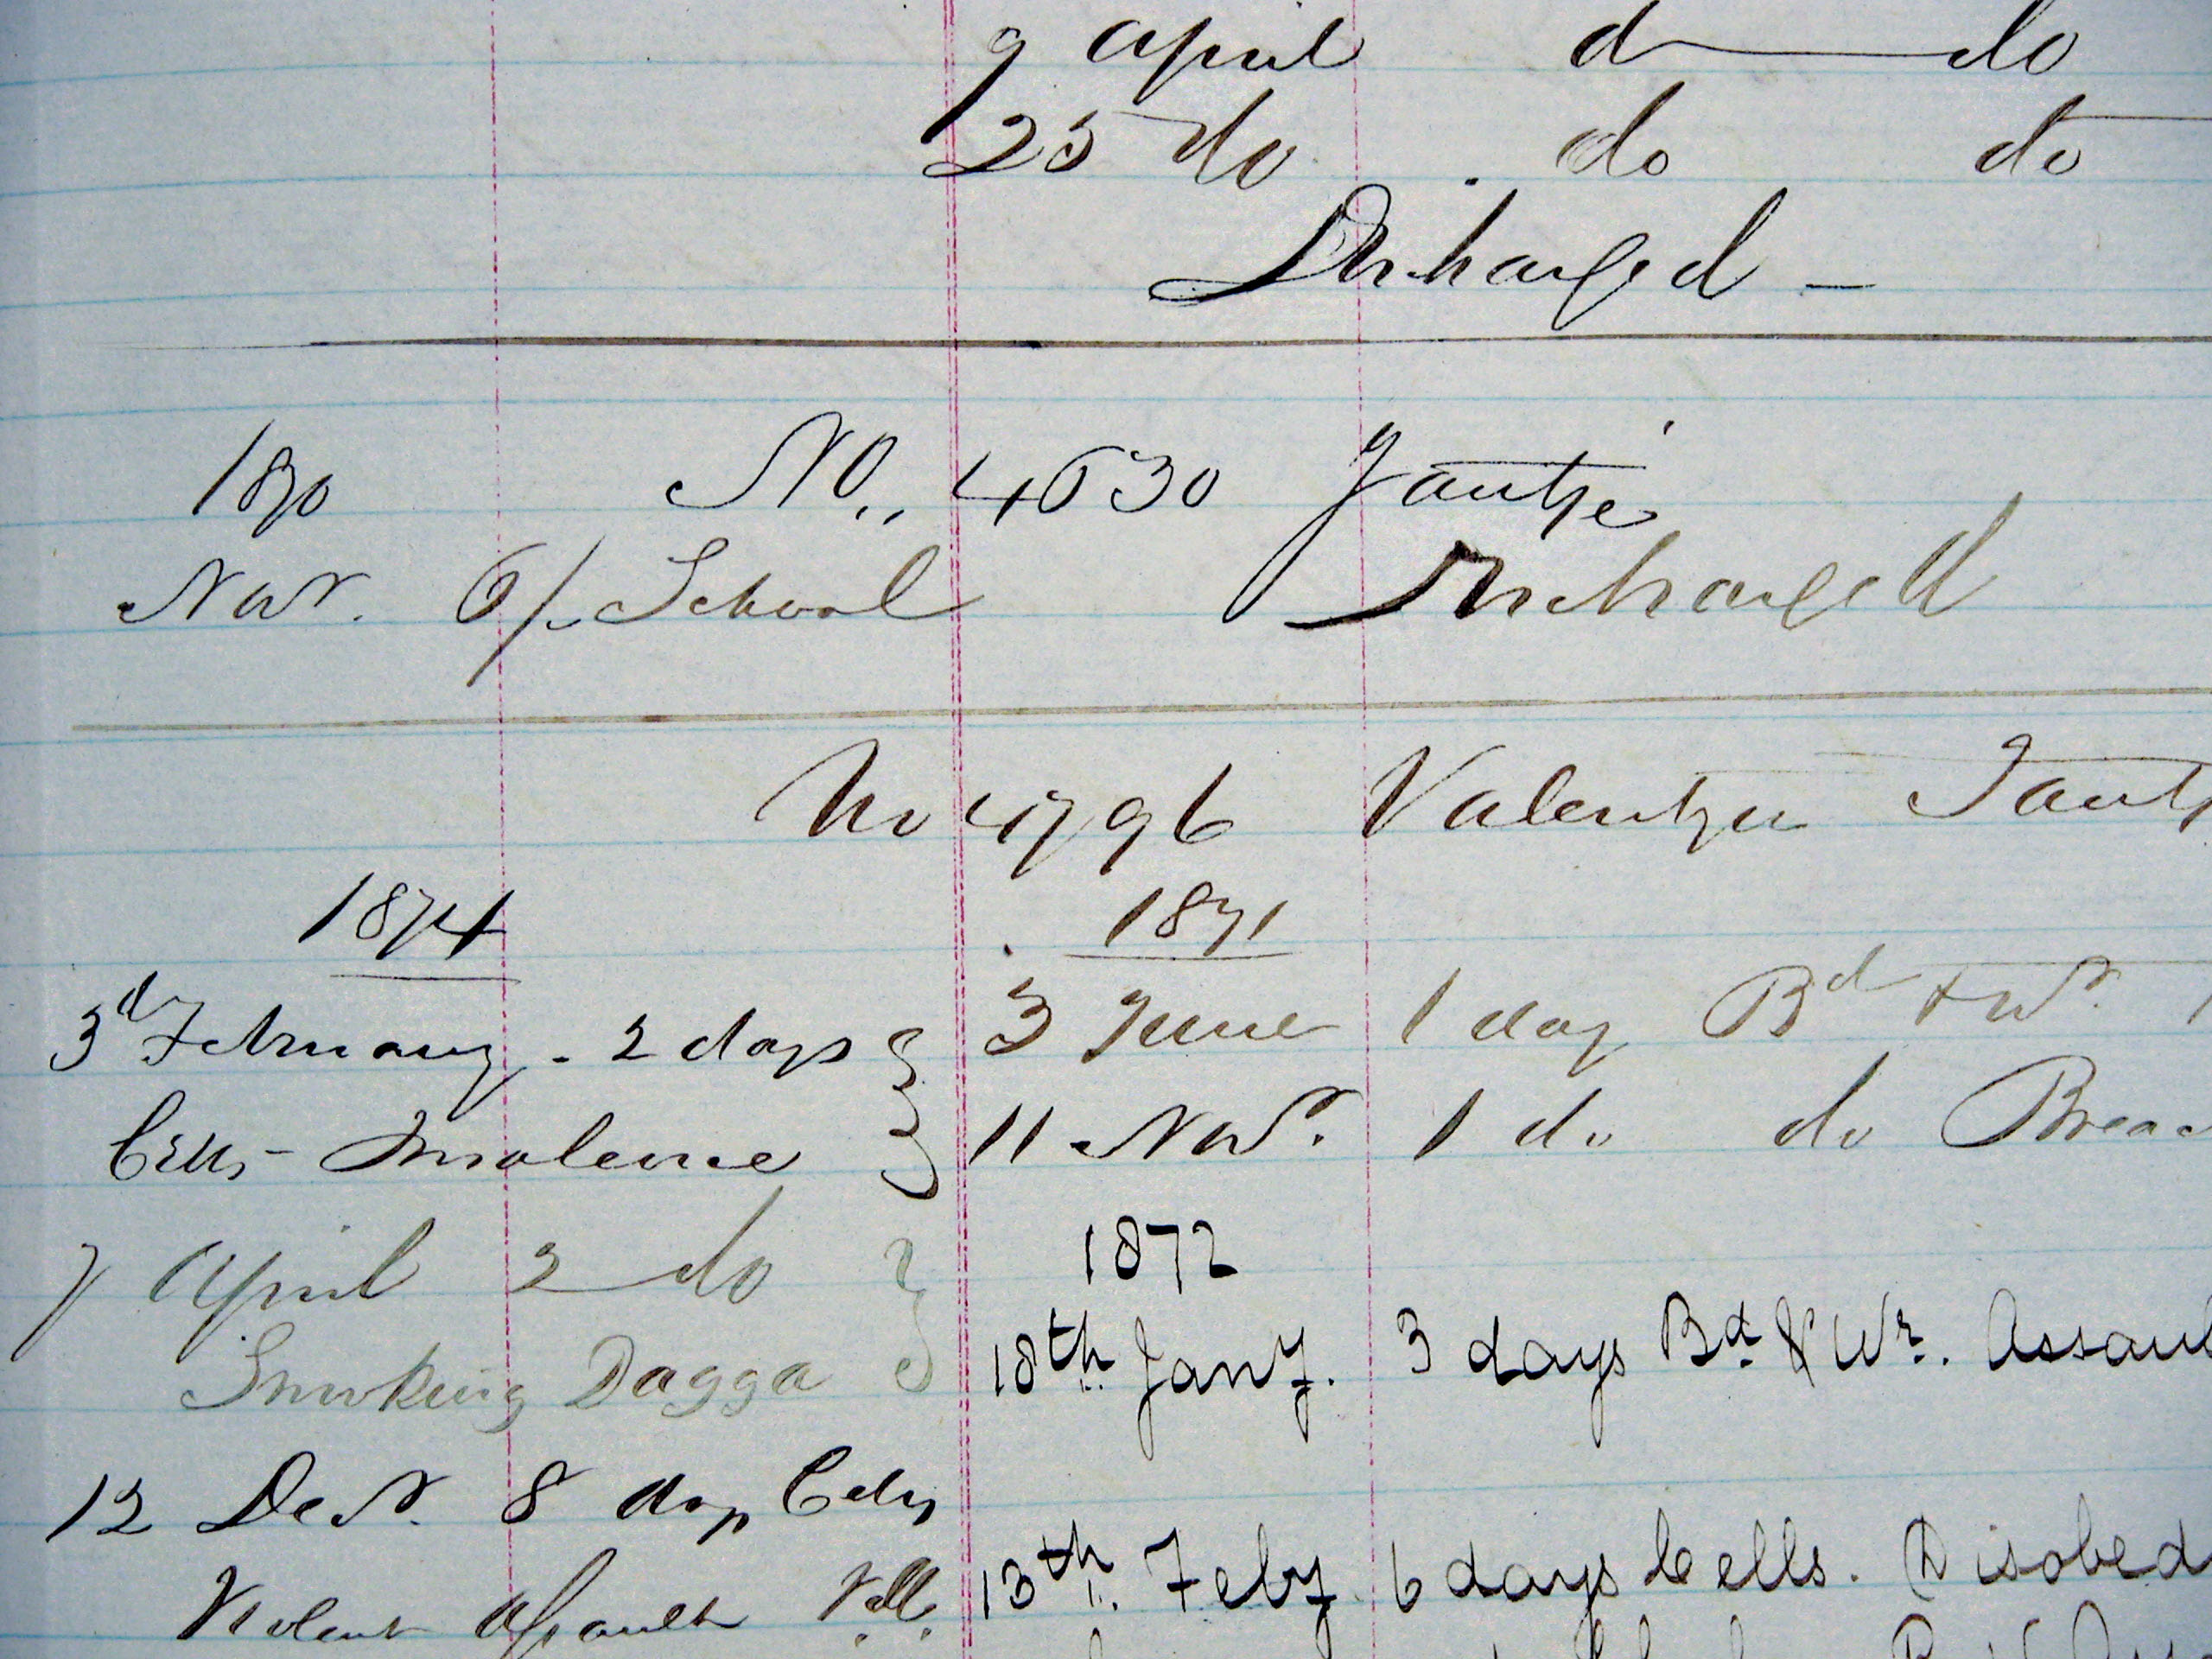 9 April d do
25 do do do
Discharged -
1870 No. 4630 Jantje
Nov. 6/. School Discharged
No 4796 Valentyn Jantj
1874
3d February - 2 days
Cells - Insolence
7 April 2 do
Smoking Dagga
12 Decr. 8 days Cells
Violent assault
1871
3 June 1 day Bd & Wr.
11 Novr. 1 do do Breac
1872
18th Jany. 3 days Bd & Wr. Assaul
13th Feby 6 days Cells. Disobed